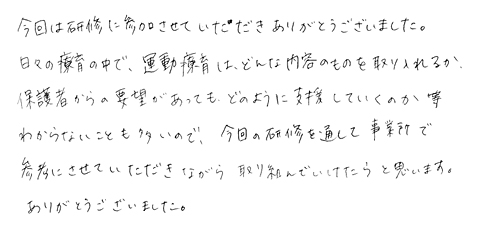 今回は研修に参加させていただきありがとうございました。
日々の療育の中で、運動療育は、どんな内容のものを取り入れるか、
保護者からの要望があっても、どのように支援していくのか等
わからないことも多いので、今回の研修を通して事業所で
参考にさせていただきながら取り組んでいけたらと思います。
ありがとうございました。